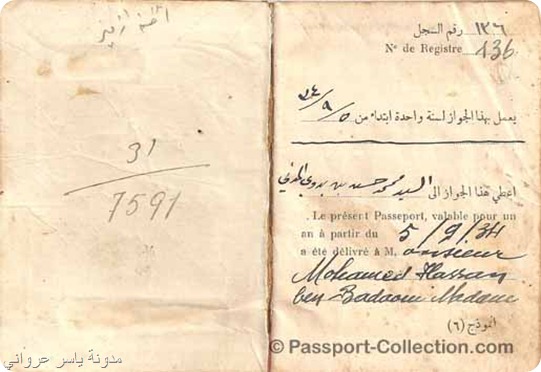 31
7591
مدونة ياسر مرواني
١٣٦ رقم السجل
Nº de Registre 136
يعمل بهذا الجواز لسنة واحدة ابتداء من ٣٤/٩/٥
اعطي هذا الجواز الى السيد محمد حسن بن بدوي المدني
Le présent Passeport, valable pour un
an à partir du 5/9/34
a été délivré à M. onsieur
Mohamed Hassan
ben Badaoui Madani
النموذج (٦)
© Passport-Collection.com